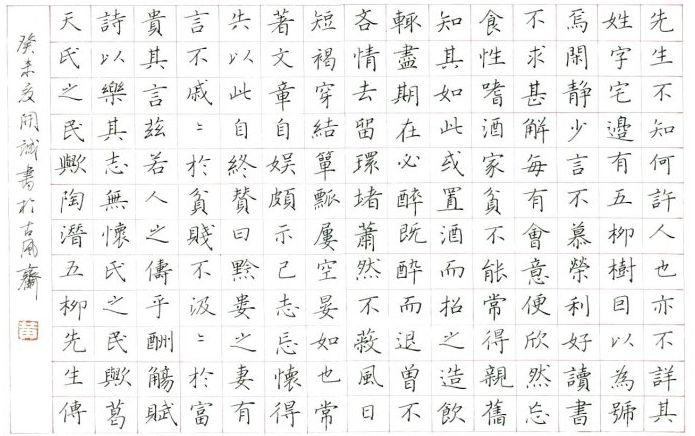 先生不知何許人也亦不詳其
姓字宅邊有五柳樹囙以為號
焉閑靜少言不慕榮利好讀書
不求甚解每有會意便欣然忘
食性嗜酒家貧不能常得親舊
知其如此或置酒而招之造飲
輒盡期在必醉既醉而退曾不
吝情去留環堵蕭然不蔽風日
短褐穿結簞瓢屢空晏如也常
著文章自娛頗示己志忘懷得
失以此自終贊曰黔婁之妻有
言不戚〻於貧賤不汲〻於富
貴其言茲若人之儔乎酬觴賦
詩以樂其志無懷氏之民歟葛
天氏之民歟陶潛五柳先生傳
癸未夏開誠書於古風齋
黃